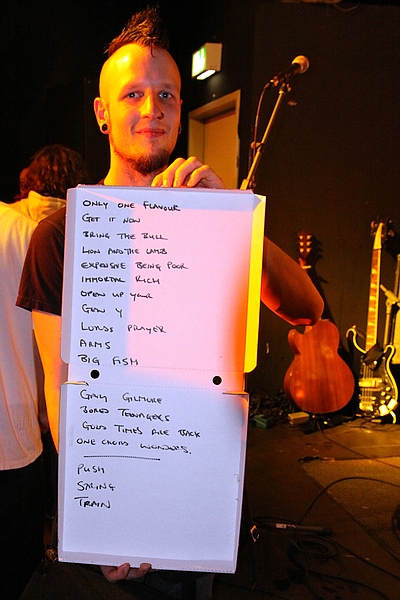 ONLY ONE FLAVOUR
GET IT NOW
BRING THE BULL
LION AND THE LAMB
EXPENSIVE BEING POOR
IMMORTAL RICH
OPEN UP YOUR
GEN Y
LORDS PRAYER
ARMS
BIG FISH
GARY GILMORE
BORED TEENAGERS
GOOD TIMES ARE BACK
ONE CHORD WONDERS.
PUSH
SALING
TRAIN